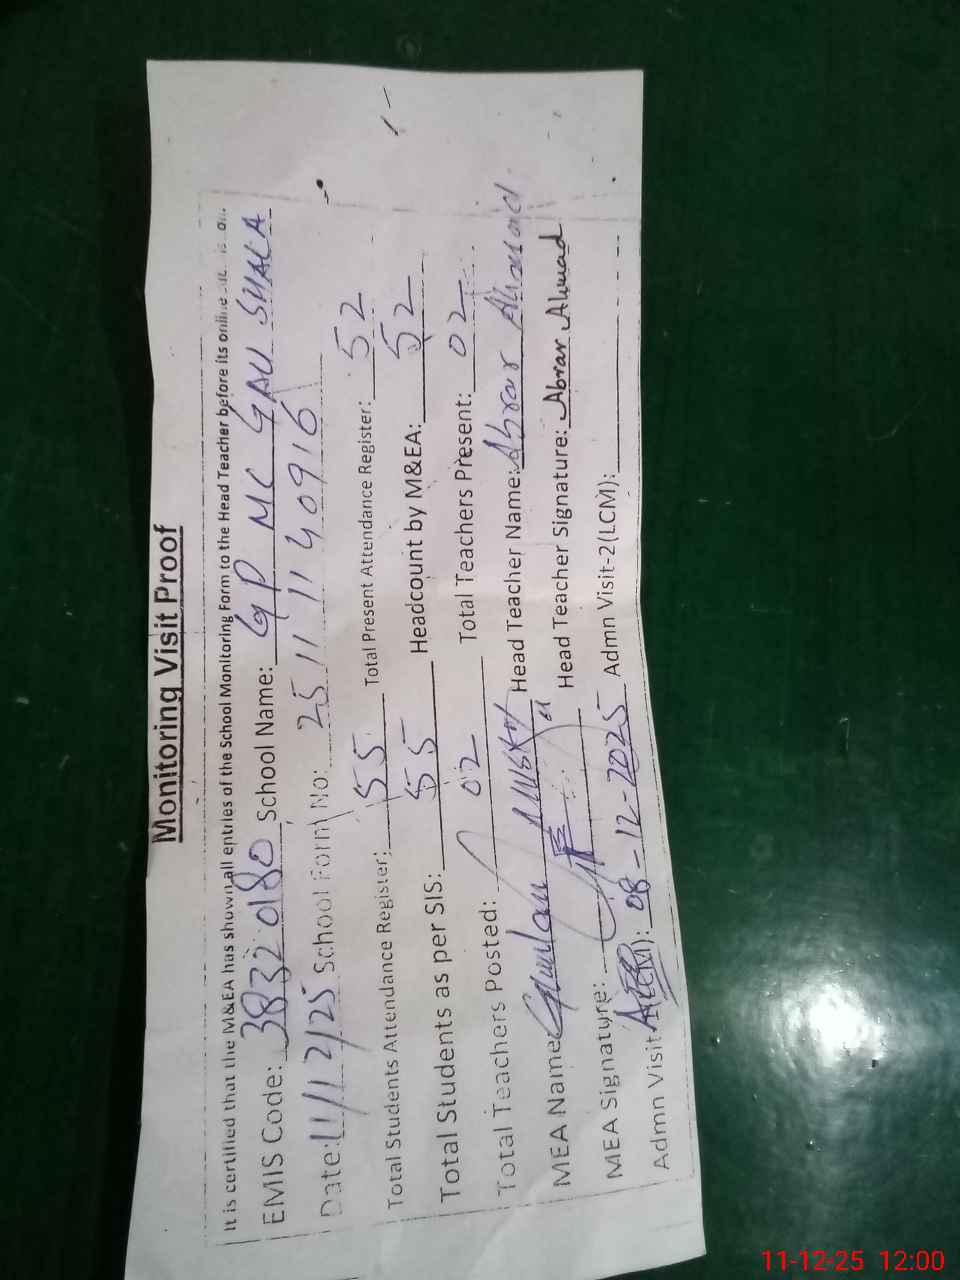 Monitoring Visit Proof
It is certified that the M&EA has shown all entries of the School Monitoring Form to the Head Teacher before its online
EMIS Code: 38320180 School Name: GP MC GAU SHALA
Date: 11/12/25 School Form No: 25 11 11 40916
Total Students Attendance Register: 55 Total Present Attendance Register: 52
Total Students as per SIS: 55 Headcount by M&EA: 52
Total Teachers Posted: 02 Total Teachers Present: 02
MEA Name Head Teacher Name: Abrar Ahmad
MEA Signature: Head Teacher Signature: Abrar Ahmad
Admn Visit 08-12-2025 Admn Visit-2(LCM):
11-12-25 12:00